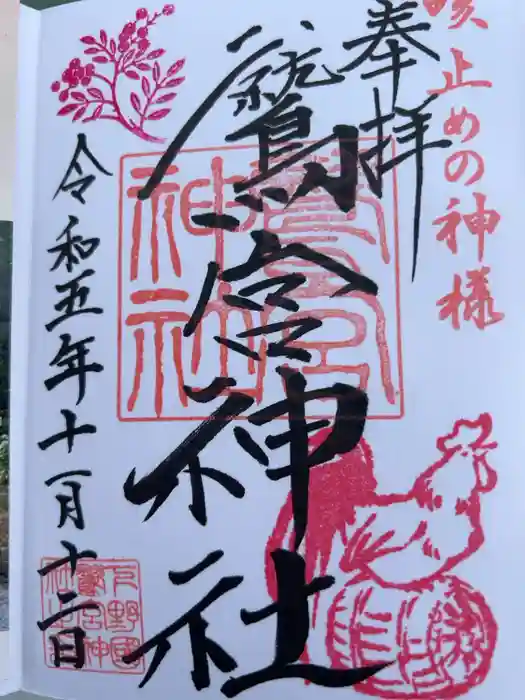 咳止めの神様
奉拝
鷲宮神社
令和五年十一月十二日
鷲宮
神社
下野國
鷲宮神
社之印